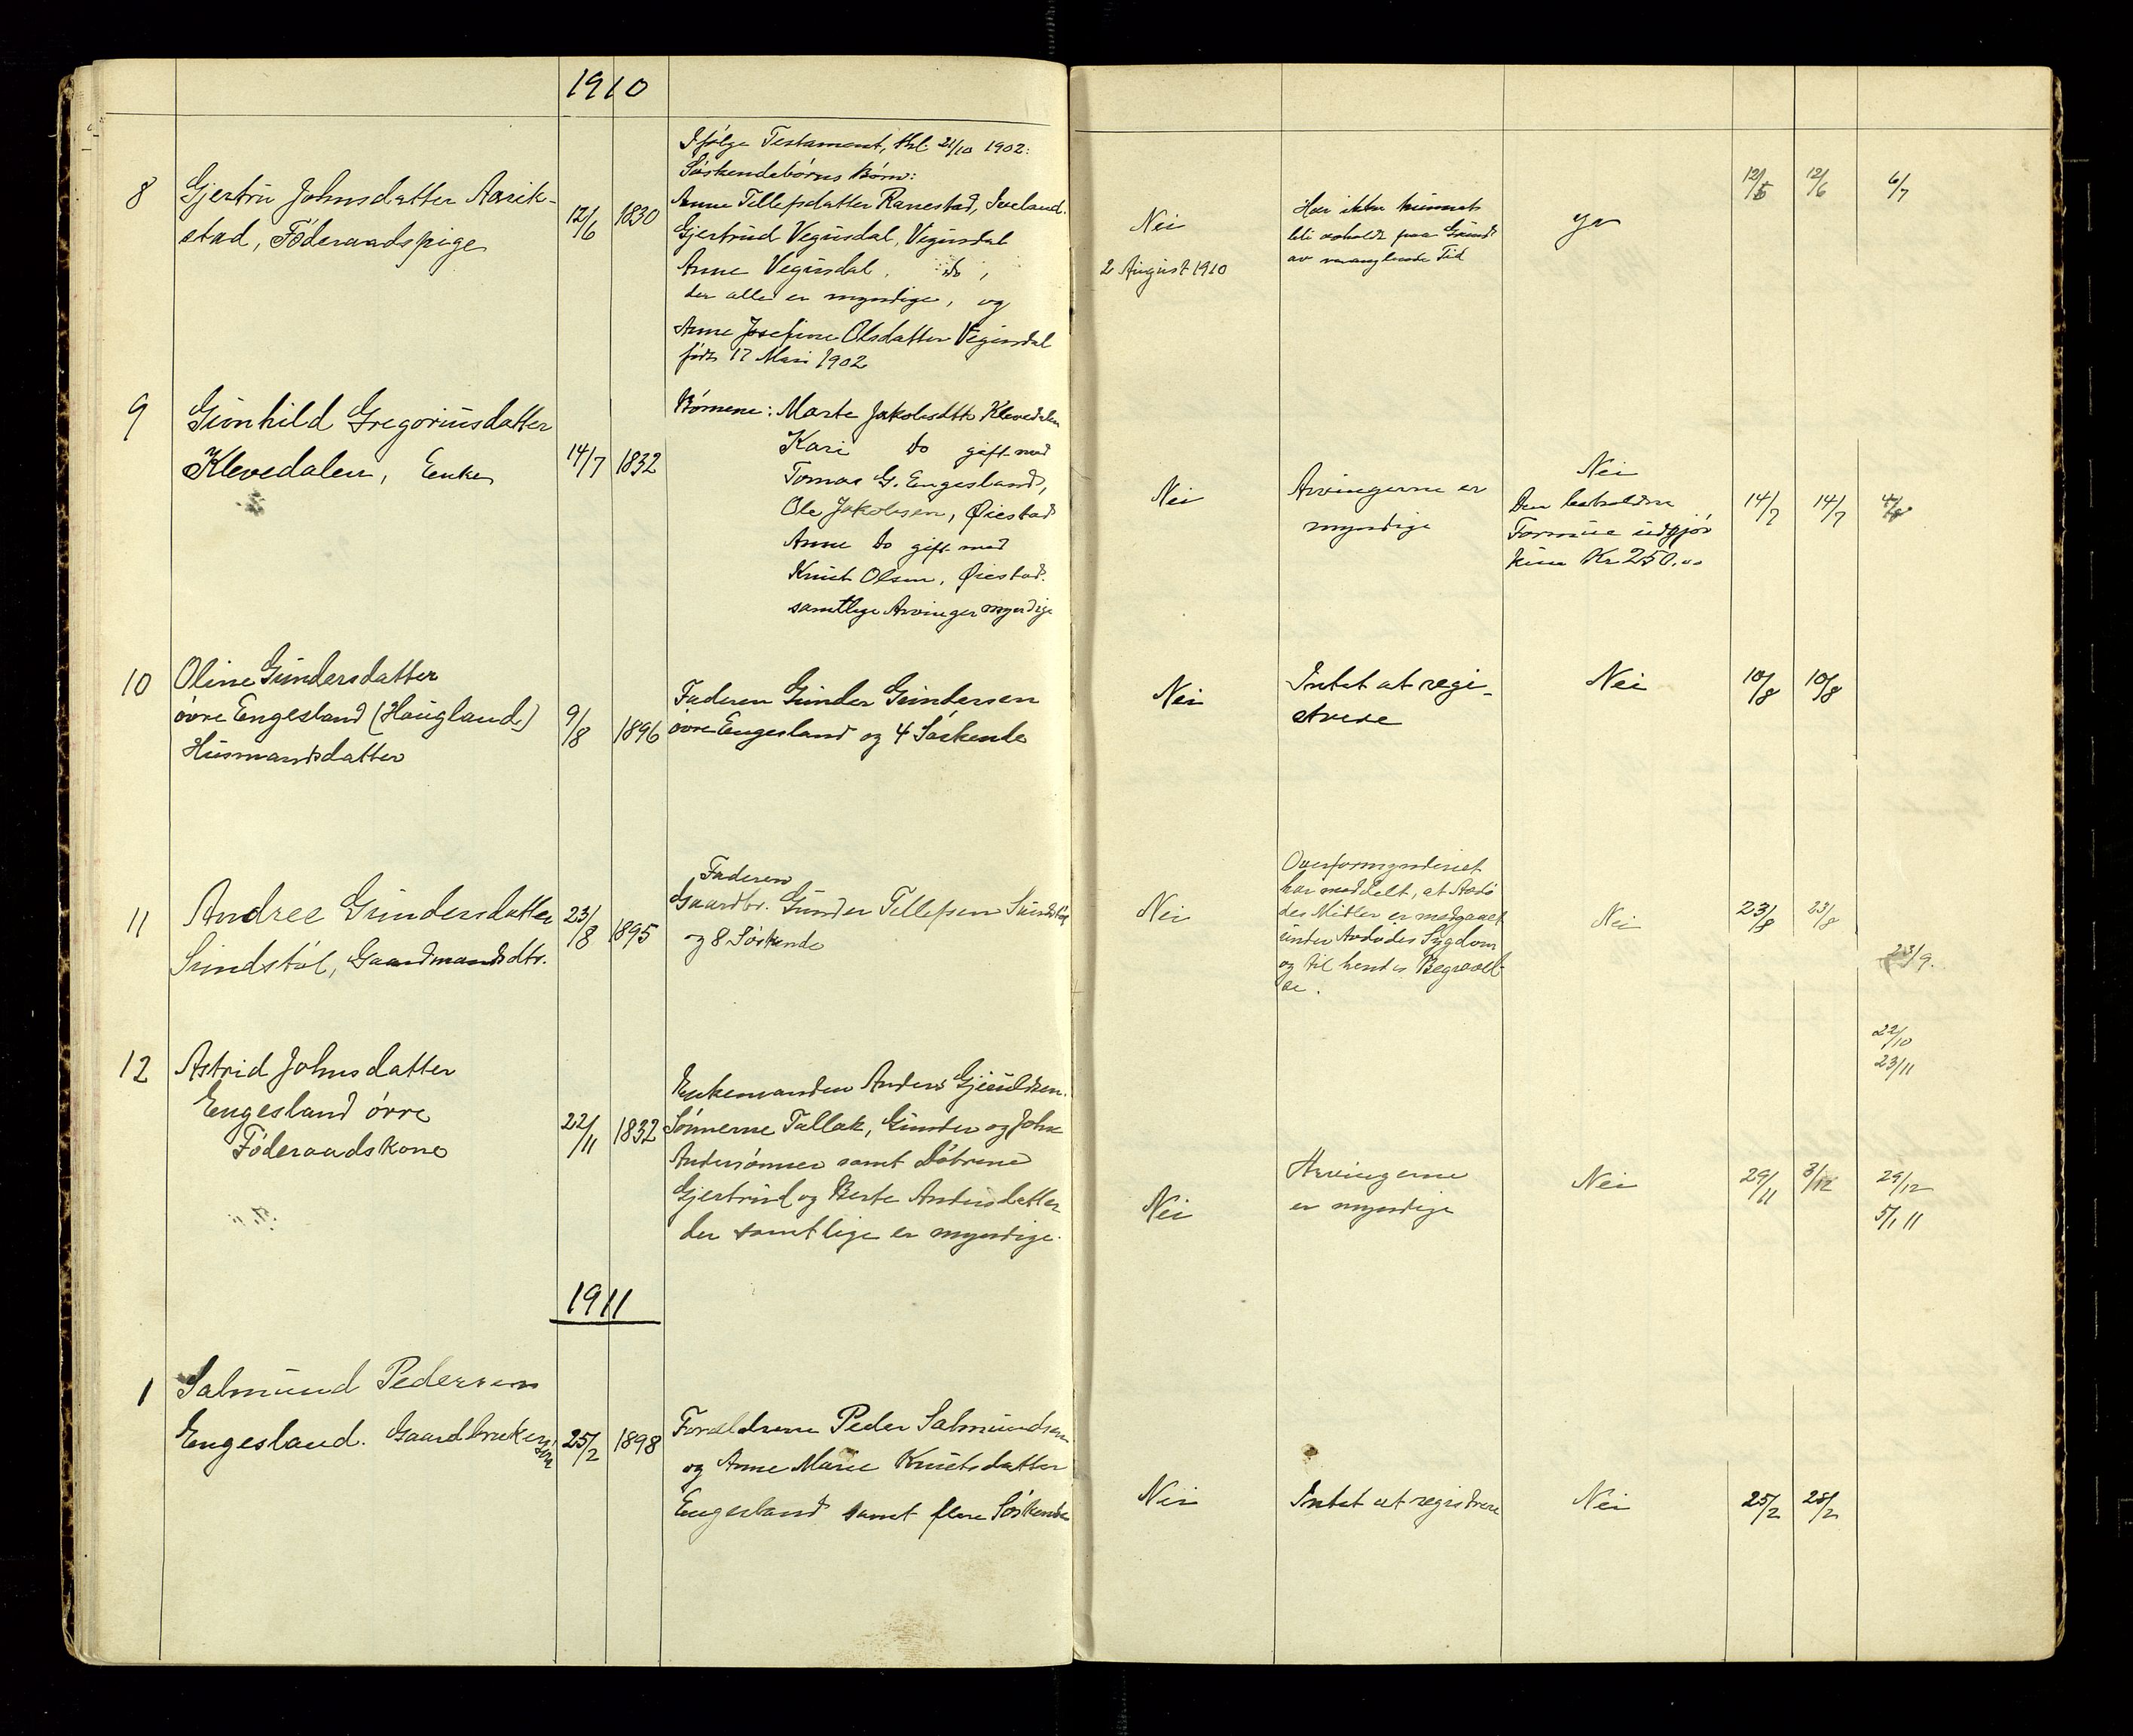 1910
8
Gjertru Johnsdatter Aarik-
stad, Föderaadspige
12/6 1830
Ifølge Testament, tkl. 21/10 1902:
Söskendebörns Börn:
Anne Tellefsdatter Ranestad, Iveland.
Gjertrud Vegusdal, Vegusdal
Anne Vegusdal, do,
der alle er myndige, og
Anne Josefine Olsdatter Vegusdal
födt 17 Mai 1902
Nei
2 August 1910
Har ikke kunnet
bli avholdt paa Grund
av manglende Tid
Ja
12/6 6/7
9
Gunhild Gregoriusdatter
Klevedalen, Enke
14/7 1832
Börnene: Marte Jakobsdtr Klevedalen
Kari do gift med
Tomas G. Engesland,
Ole Jakobsen, Øiestad
Anne do gift med
Knut Olsen, Øiestad.
samtlige Arvinger myndige
Nei
Arvingerne er
myndige
Nei
Den beholdne
Formue udgjör
kun Kr 250.00
14/7 14/7
10
Oline Gundersdatter
övre Engesland (Haugland)
Husmandsdatter
9/8 1896
Faderen Gunder Gundersen
övre Engesland og 4 Söskende
Nei
Intet at regi-
strere
Nei
10/8 10/8
11
Andree Gundersdatter
Sundstöl, Gaardmandsdtr.
23/8 1895
Faderen
Gaardbr. Gunder Tellefsen Sundstöl
og 8 Söskende
Nei
Overformynderiet
har meddelt, at Avdö
des Midler er medgaaet
under Avdødes Sygdom
og til hendes Begravel-
se.
Nei
23/8 23/8
23/9.
22/10
23/11
12
Astrid Johnsdatter
Engesland övre
Föderaadskone
22/11 1832
Enkemanden Anders Gjeruldsen.
Sönnerne Tallak, Gunder og John
Andersönner samt Dötrene
Gjertrud og Berte Andersdatter
der samtlige er myndige.
Nei
Arvingerne
er myndige
Nei
29/11 3/12 29/12
5/1 11
1911
1
Salmund Pedersen
Engesland. Gaardbrukersön
25/2 1898
Forældrene Peder Salmundsen
og Anne Marie Knutsdatter
Engesland samt flere Söskende
Nei
Intet at registrere
Nei
25/2 25/2